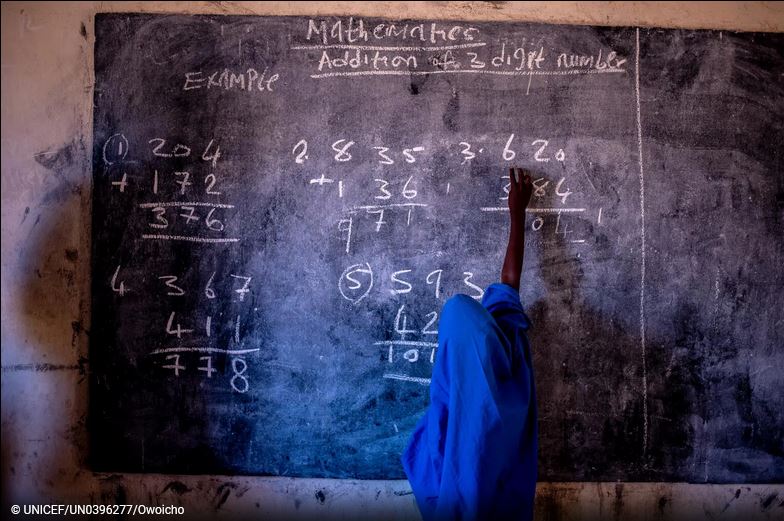 Mathematics
Addition of 3 digit number
EXAMPLE
(1) 204
+ 172
376
2. 835
+ 1 36
971
3. 620
384
04
4. 367
411
778
(5) 593
42
101
© UNICEF/UN0396277/Owoicho